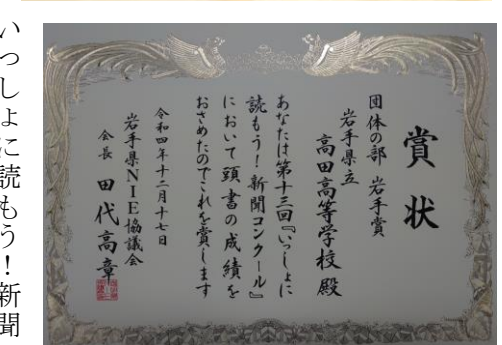 賞状
団体の部 岩手賞
岩手県立
高田高等学校殿
あなたは第十三回『いっしょに
読もう！新聞コンクール』
において頭書の成績を
おさめたのでこれを賞します
令和四年十二月十七日
岩手県NIE協議会
会長 田代高章
いっしょに読もう！新聞